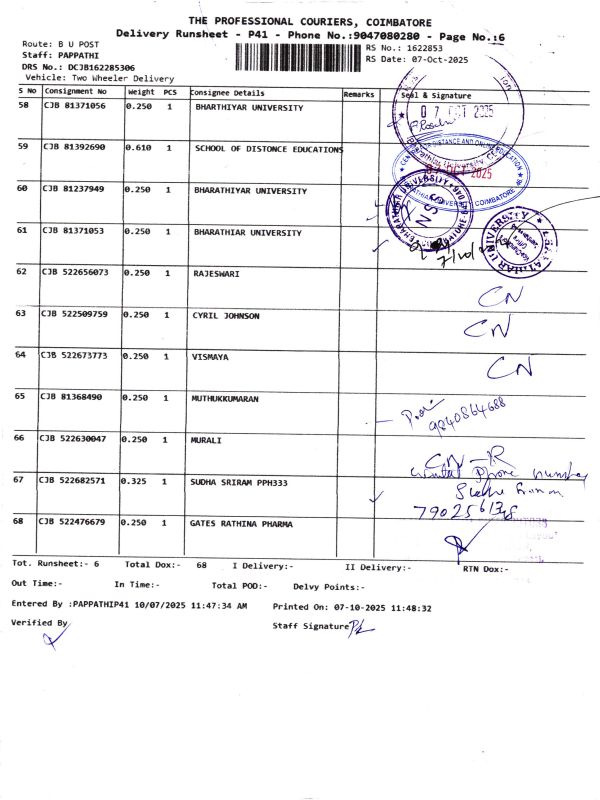 THE PROFESSIONAL COURIERS, COIMBATORE
Delivery Runsheet - P41 - Phone No.:9047080280 - Page No.:6
Route: B U POST
Staff: PAPPATHI
DRS No.: DCJB162285306
Vehicle: Two Wheeler Delivery
RS No.: 1622853
RS Date: 07-Oct-2025
S No Consignment No Weight PCS Consignee Details Remarks Seal & Signature
58 CJB 81371056 0.250 1 BHARTHIYAR UNIVERSITY
07 OCT 2025
59 CJB 81392690 0.610 1 SCHOOL OF DISTONCE EDUCATIONS
CENTRE FOR DISTANCE AND ONLINE EDUCATION
07 OCT 2025
BHARATHIAR UNIVERSITY, COIMBATORE
60 CJB 81237949 0.250 1 BHARATHIYAR UNIVERSITY
BHARATHIAR UNIVERSITY
NSS
61 CJB 81371053 0.250 1 BHARATHIYAR UNIVERSITY
62 CJB 522656073 0.250 1 RAJESWARI CN
63 CJB 522509759 0.250 1 CYRIL JOHNSON CN
64 CJB 522673773 0.250 1 VISMAYA CN
65 CJB 81368490 0.250 1 MUTHUKKUMARAN
9840864688
66 CJB 522630047 0.250 1 MURALI CN - R
Phone number
67 CJB 522682571 0.325 1 SUDHA SRIRAM PPH333
68 CJB 522476679 0.250 1 GATES RATHINA PHARMA
Tot. Runsheet:- 6 Total Dox:- 68 I Delivery:- II Delivery:- RTN Dox:-
Out Time:- In Time:- Total POD:- Delvy Points:-
Entered By :PAPPATHIP41 10/07/2025 11:47:34 AM Printed On: 07-10-2025 11:48:32
Verified By Staff Signature